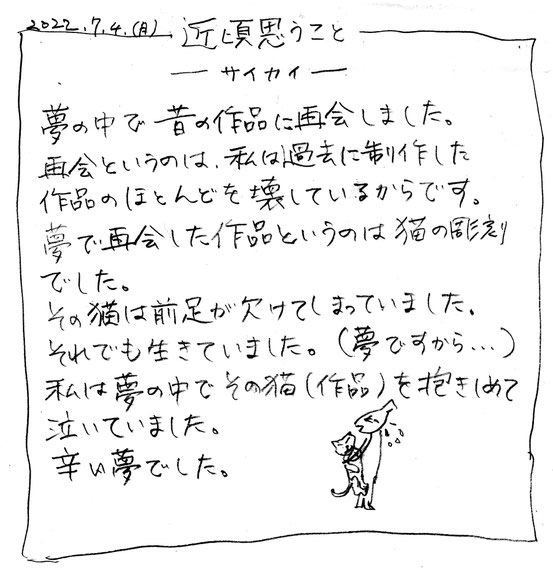 2022.7.4.(月) 近頃思うこと
― サイカイ ―
夢の中で昔の作品に再会しました。
再会というのは、私は過去に制作した
作品のほとんどを壊しているからです。
夢で再会した作品というのは猫の彫刻
でした。
その猫は前足が欠けてしまっていました。
それでも生きていました。(夢ですから…)
私は夢の中でその猫(作品)を抱きしめて
泣いていました。
辛い夢でした。